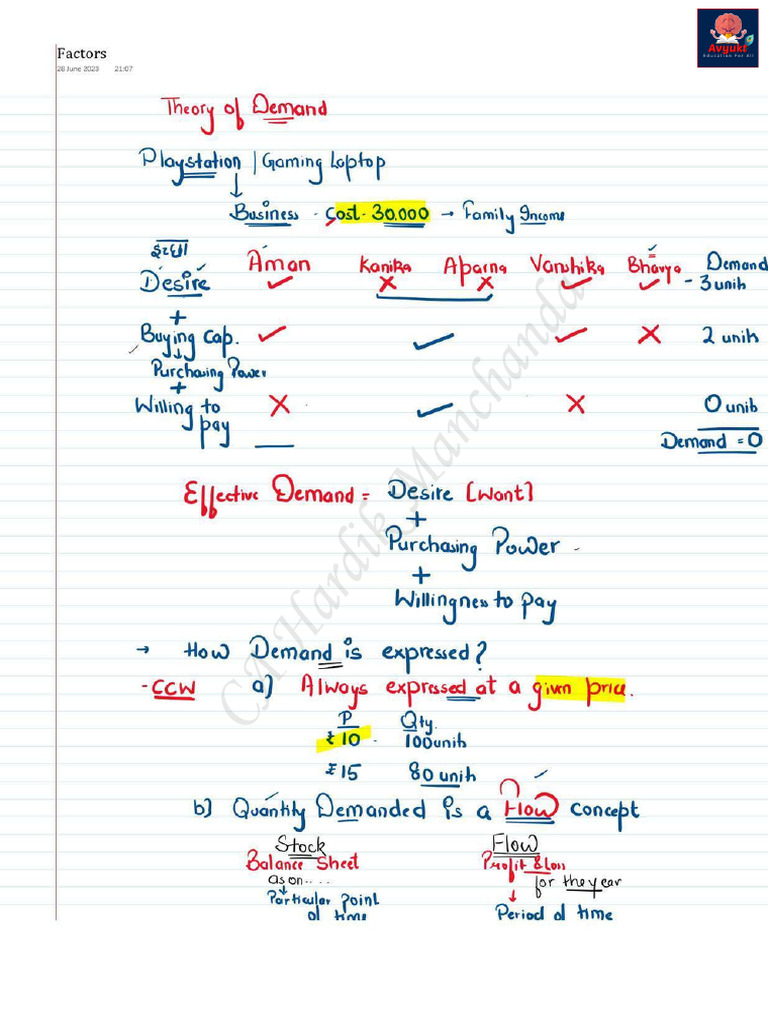 Avyukt
Education For All
Factors
28 June 2023 21:07
Theory of Demand
Playstation | Gaming Laptop
↓
Business - Cost - 30,000 → Family Income
इच्छा
Desire Aman ✓ Kanika ✗ Aparna ✗ Vanshika ✓ Bhavya ✓ Demand - 3 units
+
Buying Cap. ✓ ✓ ✓ ✗ 2 units
↓
Purchasing Power
+
Willing to pay ✗ ✓ ✗ 0 units
Demand = 0
Effective Demand = Desire [Want]
+
Purchasing Power -
+
Willingness to pay
→ How Demand is expressed?
- CCW a) Always expressed at a given price.
P Qty.
₹10 - 100 units
₹15 80 units
b) Quantity Demanded is a Flow concept
Stock Flow
Balance Sheet Profit & Loss
as on.... for the year
↓ ↓
Particular Point of time Period of time
CA Hardik Manchanda